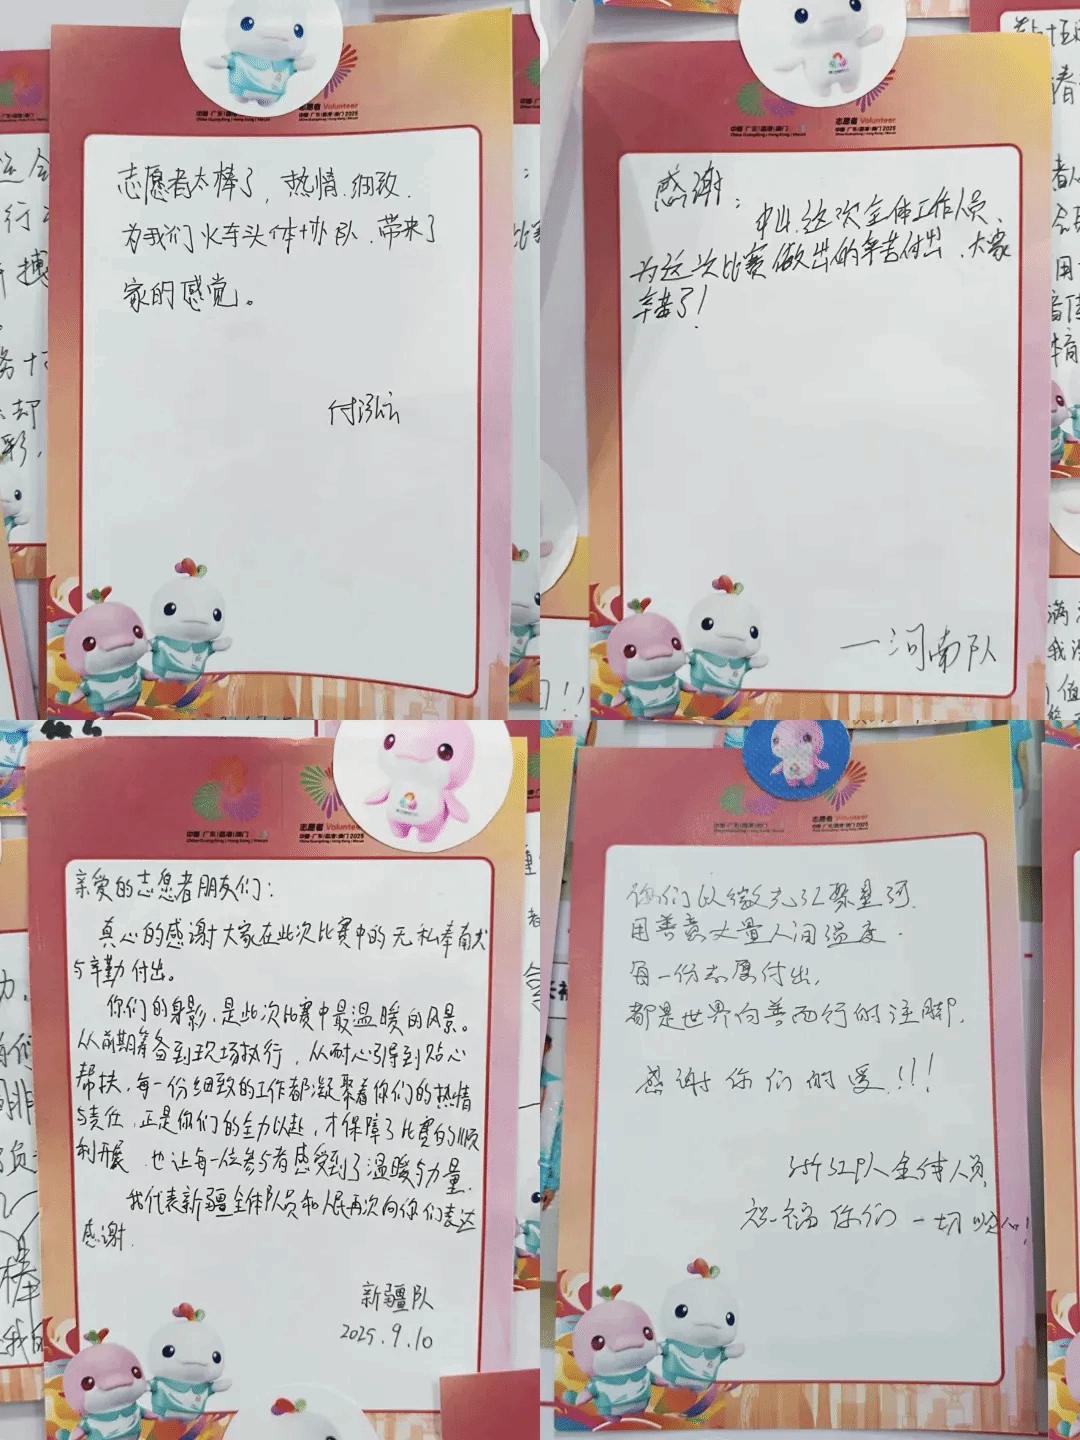 中国·广东|香港|澳门
志愿者 Volunteer
中国·广东|香港|澳门 2025
志愿者太棒了，热情.细致.
为我们火车头体协队.带来了
家的感觉。
中国·广东|香港|澳门
志愿者 Volunteer
中国·广东|香港|澳门 2025
感谢：
中山这次全体工作人员、
为这次比赛做出的辛苦付出、大家
辛苦了!
一河南队
中国·广东|香港|澳门
China·Guangdong | Hong Kong | Macao
志愿者 Volunteer
中国·广东|香港|澳门 2025
亲爱的志愿者朋友们：
真心的感谢大家在此次比赛中的无私奉献
与辛勤付出。
你们的身影，是此次比赛中最温暖的风景。
从前期筹备到现场执行，从耐心引导到贴心
帮扶，每一份细致的工作都凝聚着你们的热情
与责任，正是你们的全力以赴，才保障了比赛的顺
利开展，也让每一位参与者感受到了温暖与力量.
我代表新疆全体队员和人民再次向你们表达
感谢.
新疆队
2025.9.10
志愿者 Volunteer
你们以微光汇聚星河.
用善意丈量人间温度.
每一份志愿付出,
都是世界向善而行的注脚.
感谢你们的爱!!!
全体人员,
祝福你们一切